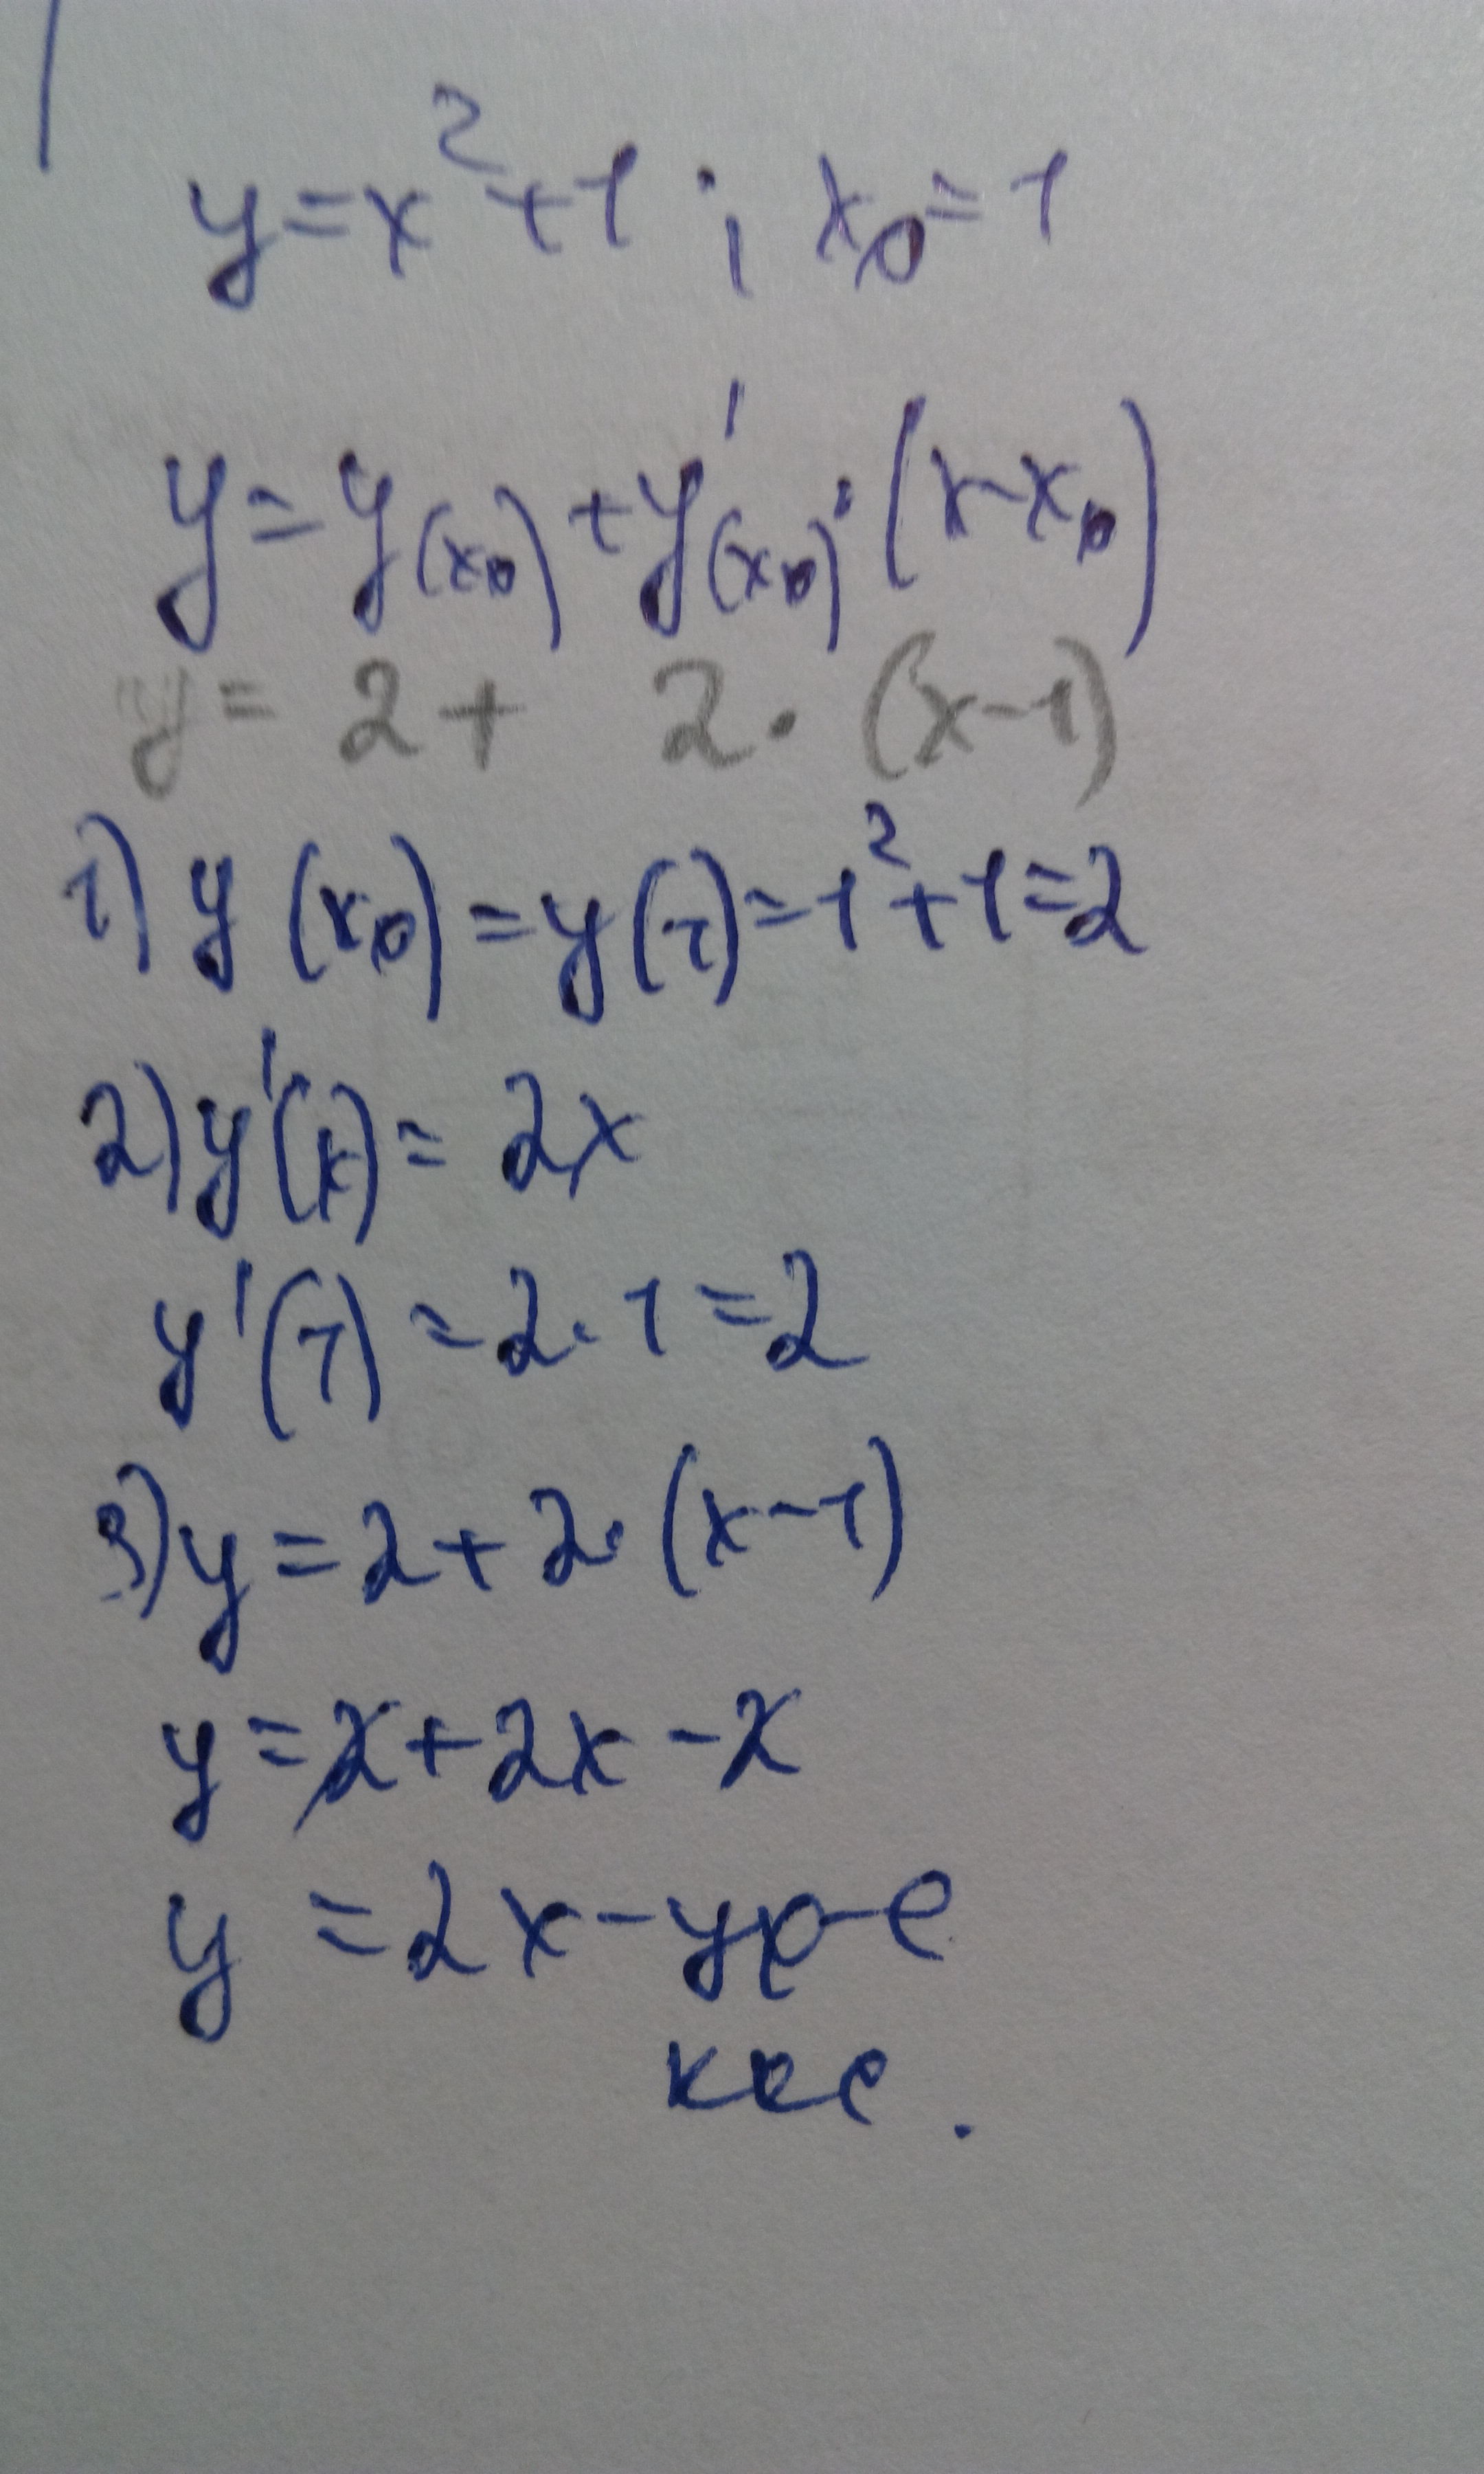 y=x²+1 ; x₀=1
y=y(x₀)+y'(x₀)·(x-x₀)
y= 2+ 2·(x-1)
1) y(x₀)=y(1)=1²+1=2
2) y'(x)= 2x
y'(1)=2·1=2
3) y=2+2·(x-1)
y=2+2x-2
y=2x-ур-е
кас.